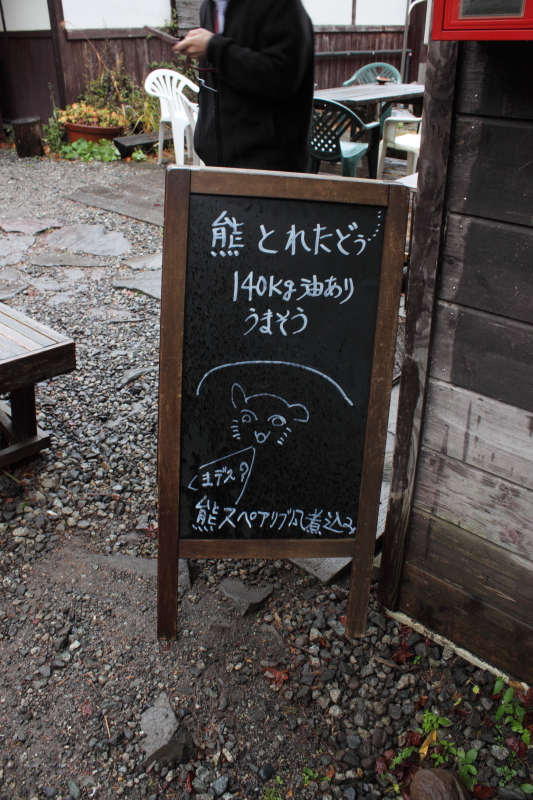 熊とれたどぅ…
140Kg油あり
うまそう
主デス?
熊スペアリブ風煮込み